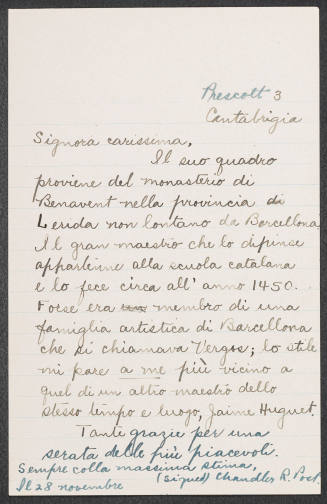 Prescott 3
Cantabrigia
Signora carissima,
Il suo quadro
proviene del monasterio di
Benavent nella provincia di
Lerida non lontano da Barcellona.
Il gran maestro che lo dipinse
appartenne alla scuola catalana
e lo fece circa all' anno 1450.
Forse era un membro di una
famiglia artistica di Barcellona
che si chiamava Vergos; lo stile
mi pare a me più vicino a
quel di un altro maestro dello
stesso tempo e luogo, Jaime Huguet.
Tante grazie per una
serata delle più piacevoli.
Sempre colla massima stima,
(signed) Chandler R. Post
Il 28 novembre